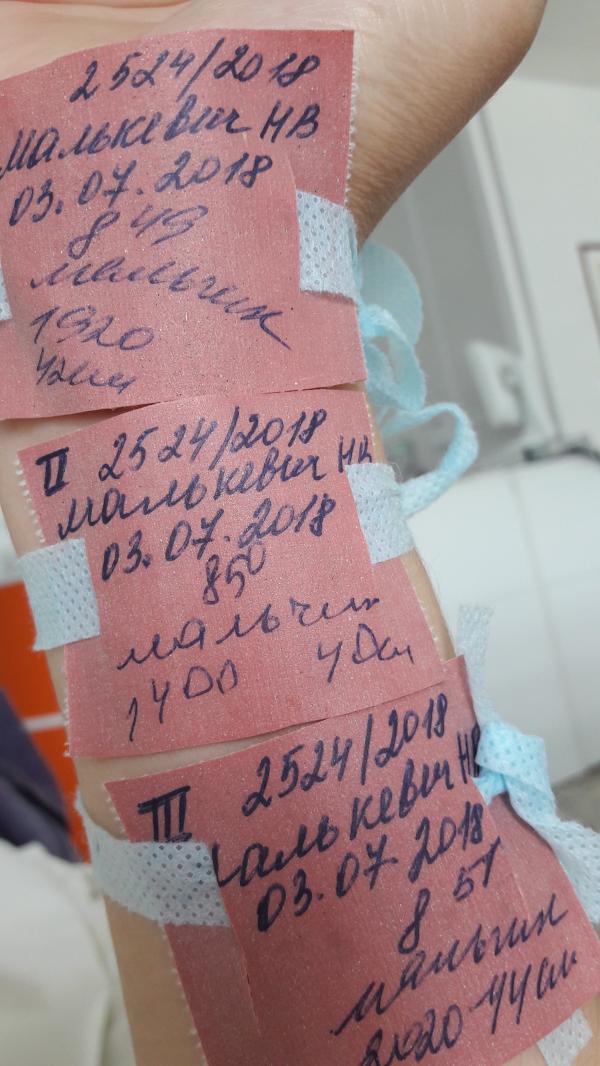 2524/2018
Малькевич НВ
03.07.2018
8 49
мальчик
1920
42см
II 2524/2018
Малькевич НВ
03.07.2018
8 50
мальчик
1400 40см
III 2524/2018
Малькевич НВ
03.07.2018
8 51
мальчик
2020 44см